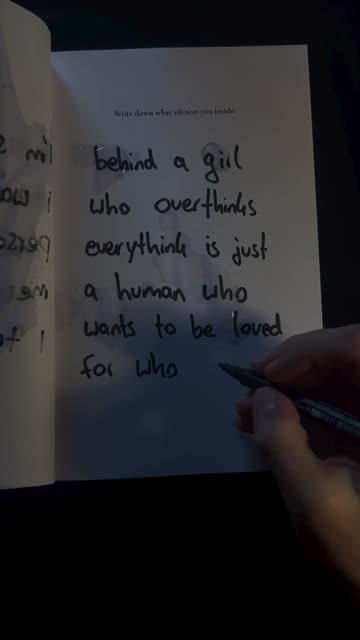 Write down what silences you inside:
behind a girl
who overthinks
everythink is just
a human who
wants to be loved
for who